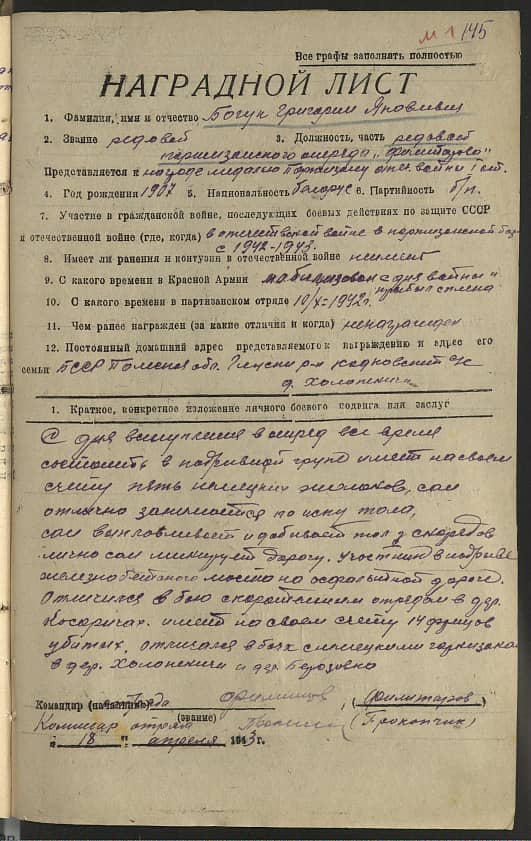 м 1 145
Все графы заполнять полностью
НАГРАДНОЙ ЛИСТ
1. Фамилия, имя и отчество Богук Григорий
2. Звание редовой 3. Должность, часть редовой
партизанского отреда
Представляется к награде медалью Партизану отеч. войны I ст.
4. Год рождения 1907 5. Национальность белорус 6. Партийность б/п.
7. Участие в гражданской войне, последующих боевых действиях по защите СССР
и отечественной войне (где, когда) в отечественой войне в партизанской
с 1942-1943
8. Имеет ли ранения и контузии в отечественной войне неимеит
9. С какого времени в Красной Армии мабилизован с дня войны и
прибыл с плена
10. С какого времени в партизанском отряде 10/X-1942 г.
11. Чем ранее награжден (за какие отличия и когда) ненагражден
12. Постоянный домашний адрес представляемого к награждению и адрес его
семьи БССР обл. р-н с/с
д. Холопеничи
1. Краткое, конкретное изложение личного боевого подвига или заслуг
С дня вступления в отред все время
состоить в групе имеет на своем
счету пять немецких сам
отлично занимается тола,
сам выплавливает и добивает тол з снаредов
лично сам дорогу. Участник в
моста на дороге.
Отличился в бою отредом в дер.
Косаричах. имеит на своем счету 14 фрицов
убитых, отличался в боях с немецкими
в дер. Холопеничи и дер. Березовка
Командир (начальник) отреда (Филитаров)
(звание)
Комисар отряда (Прокопчик)
" 18 " апреля 1943 г.